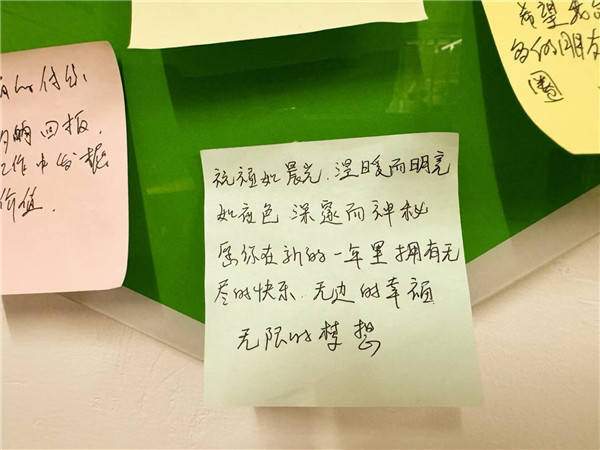 的付出
回报.
工作中发掘
价值.
祝福如晨光.温暖而明亮
如夜色 深邃而神秘
愿你在新的一年里拥有无
尽的快乐.无边的幸福
无限的梦想
希望我
的朋友
圈